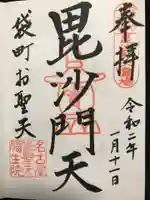 奉拝
令和二年
一月十一日
毘沙門天
袋町お聖天
名古屋
福生院